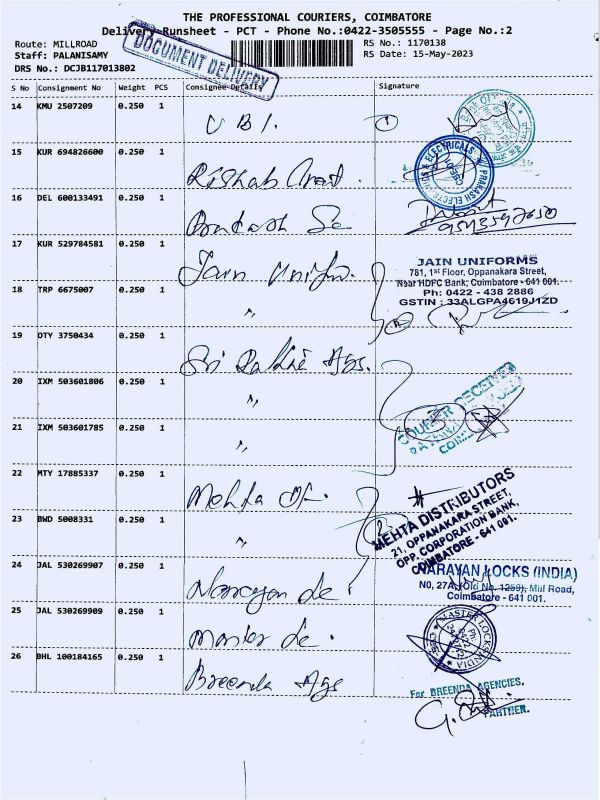 THE PROFESSIONAL COURIERS, COIMBATORE
Delivery Runsheet - PCT - Phone No.:0422-3505555 - Page No.:2
Route: MILLROAD
RS No.: 1170138
Staff: PALANISAMY
RS Date: 15-May-2023
DRS No.: DCJB117013802
DOCUMENT DELIVERY
S No Consignment No Weight PCS Consignee Details Signature
14 KMU 2507209 0.250 1 UBI. 1
15 KUR 694826600 0.250 1 Rishab
ELECTRICALS
16 DEL 600133491 0.250 1
17 KUR 529784581 0.250 1 Jain Unifm.
JAIN UNIFORMS
781, 1st Floor, Oppanakara Street,
Near HDFC Bank, Coimbatore - 641 001.
18 TRP 6675007 0.250 1 "
Ph: 0422 - 438 2886
GSTIN : 33ALGPA4619J1ZD
19 OTY 3750434 0.250 1 Sri
20 IXM 503601806 0.250 1 "
COURIER RECEIVED
3
21 IXM 503601785 0.250 1 "
22 MTY 17885337 0.250 1 Mehta
MEHTA DISTRIBUTORS
21, OPPANAKARA STREET,
OPP. CORPORATION BANK,
COIMBATORE - 641 001.
23 BWD 5008331 0.250 1 "
2
24 JAL 530269907 0.250 1 Narayan
NARAYAN LOCKS (INDIA)
NO, 27A, (Old No. 1259), Mill Road,
Coimbatore - 641 001.
25 JAL 530269909 0.250 1 Master
MASTER LOCKS INDIA
26 BHL 100184165 0.250 1 Breenda Ags
For BREENDA AGENCIES.
PARTNER.